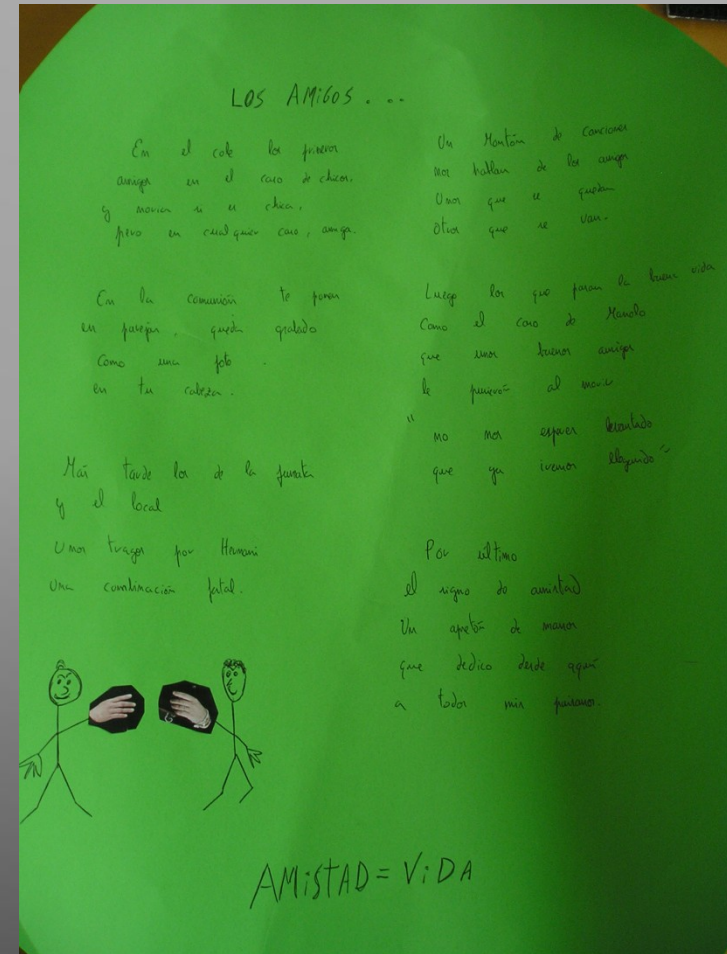 LOS AMIGOS...
En el cole los primeros
amigos en el caso de chicos.
y novias si es chica.
pero en cualquier caso, amiga.
En la comunión te ponen
en parejas. queda grabado
Como una foto.
en tu cabeza.
Mas tarde los de la
y el local
Unos tragos por Hernani
una combinación fatal.
Un Montón de canciones
nos hablan de los amigos
Unos que se quedan
Otros que se van.
Luego los que pasan la buen vida
Como el caso de Manolo
que unos buenos amigos
le al
"no nos esperes levantado
que ya iremos llegando"
Por último
el signo de amistad
Un apretón de manos
que dedico desde aquí
a todos mis paisanos.
AMiSTAD = ViDA